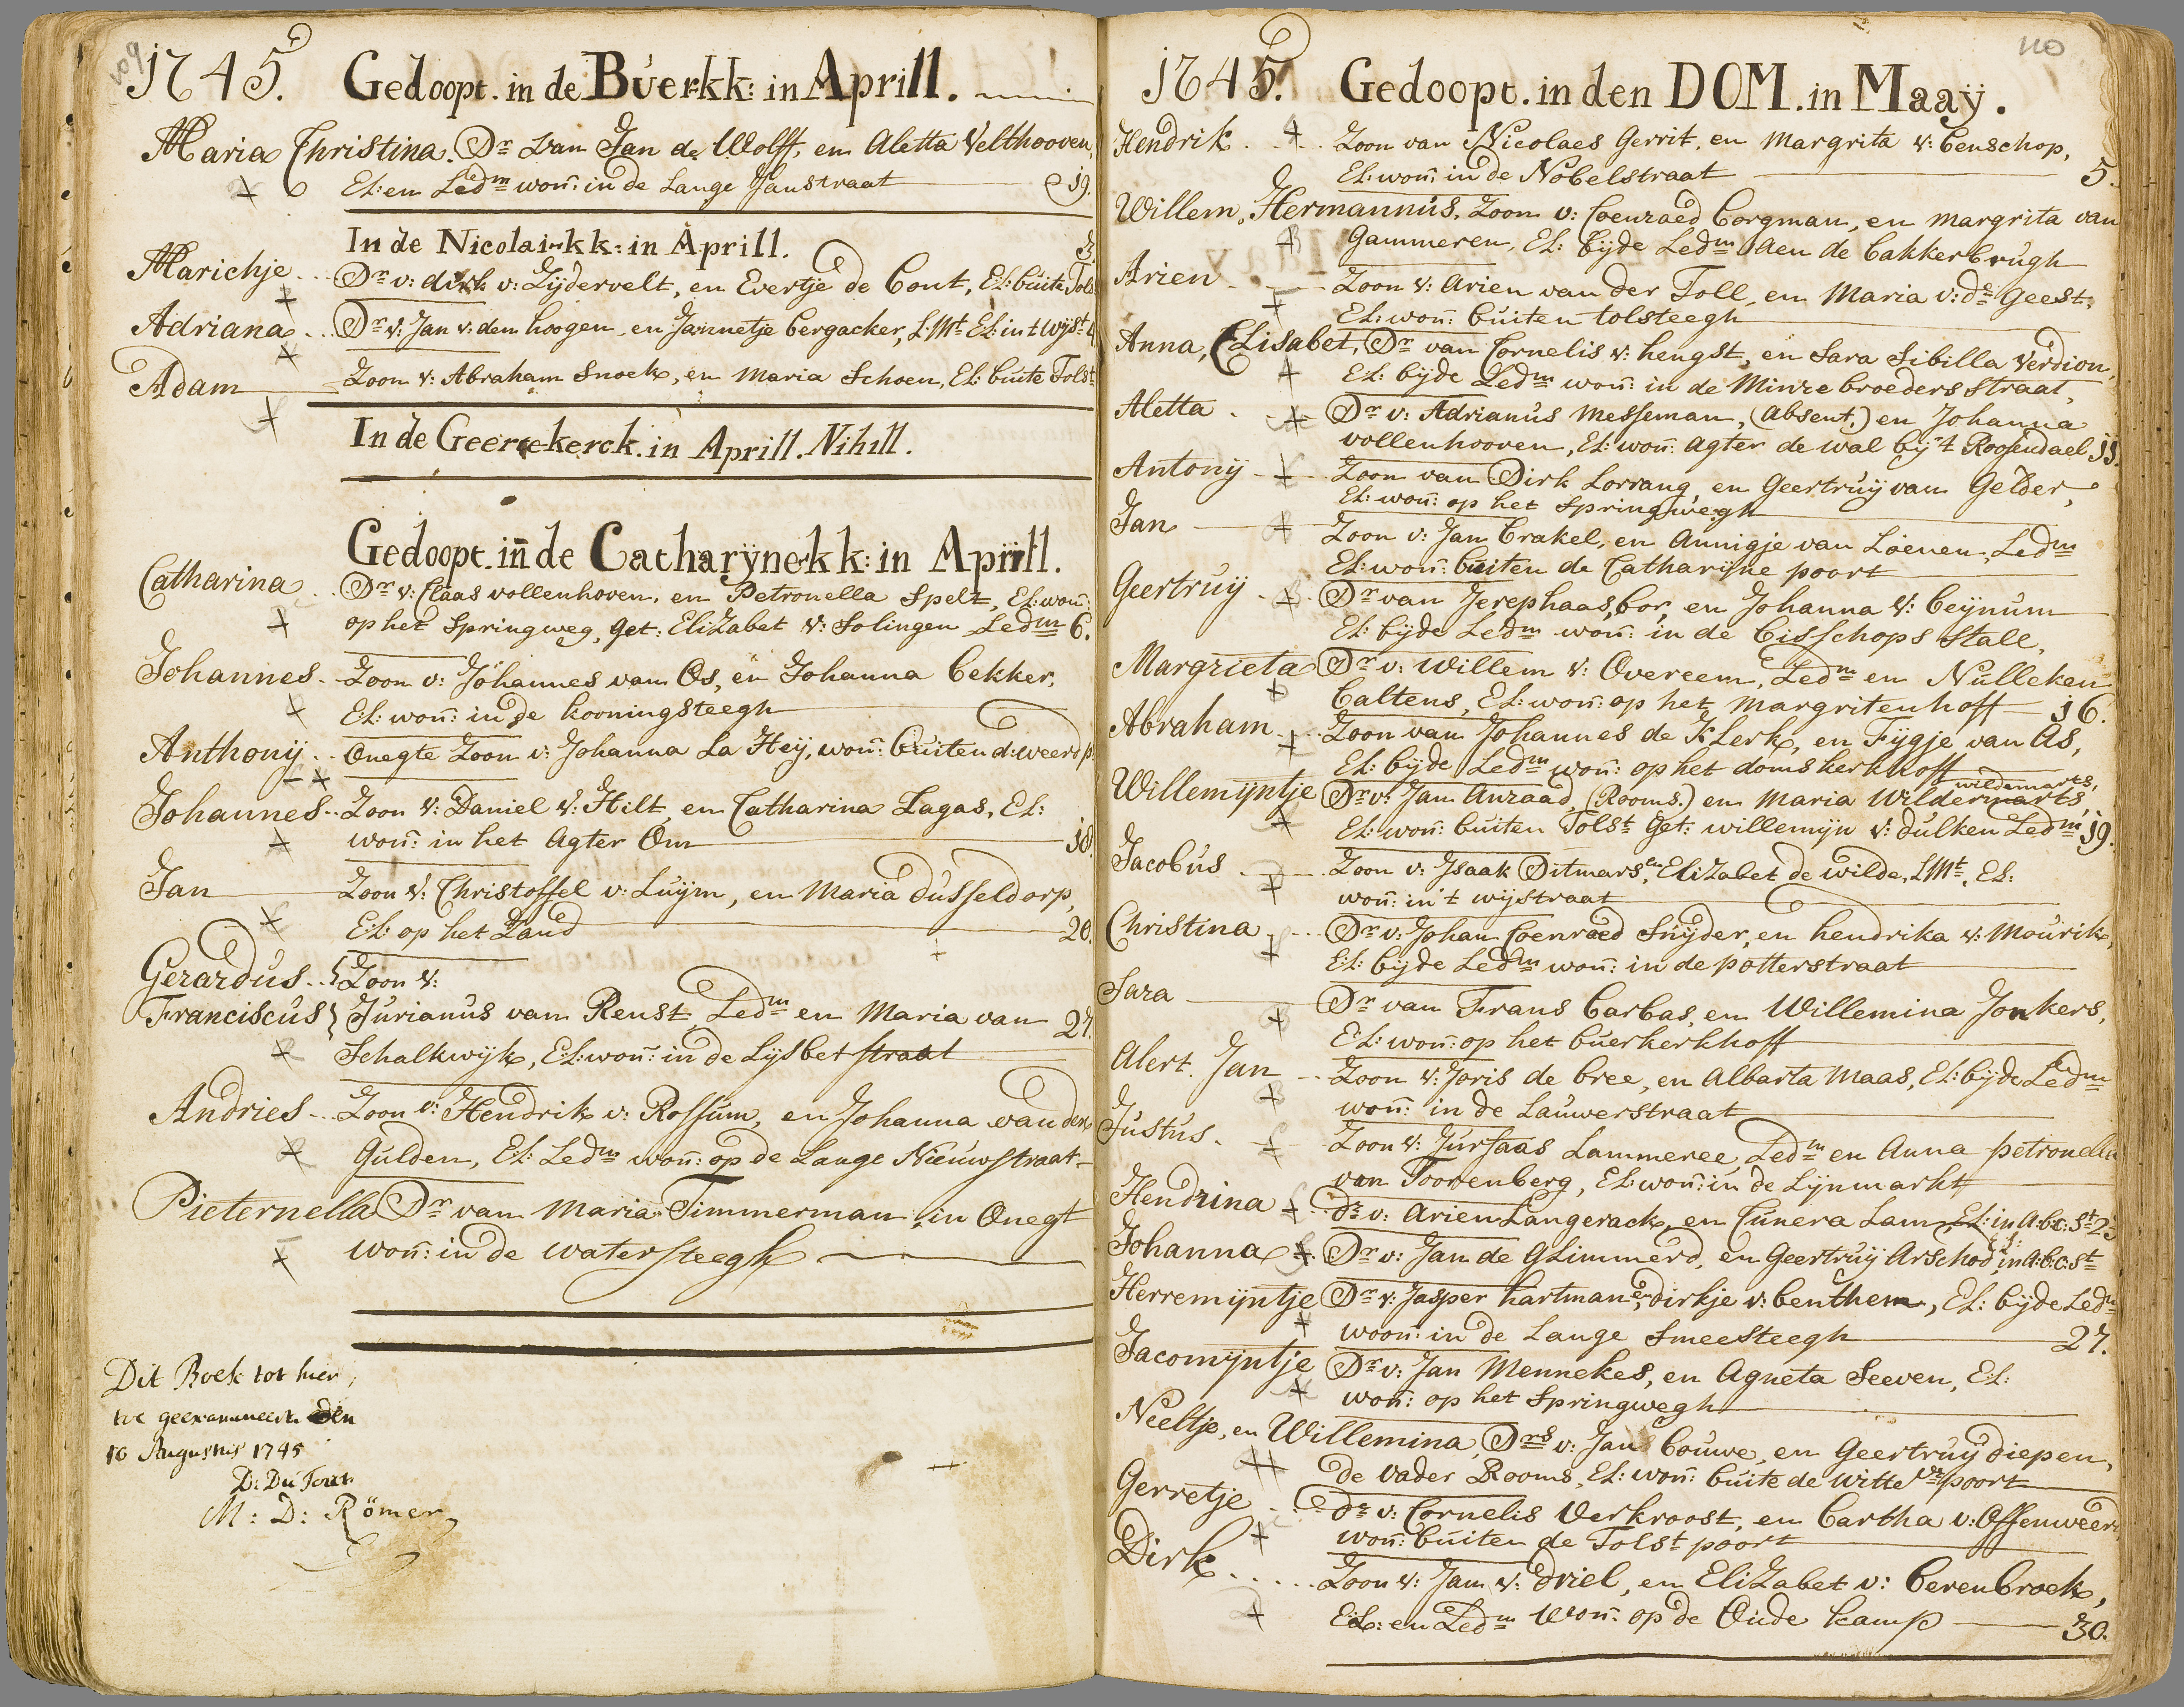 109
1745. Gedoopt. in de Buerkk: in Aprill.
Maria Christina. Dr van Jan de Wolff, en Aletta Velthooven,
El: en Ledm won: in de Lange Janstraat 19.
In de Nicolai-kk: in Aprill. 3.
Marichje ... Dr v: dirk v: Zijdervelt, en Evertje de Bout, El: buite Tols
Adriana ... Dr v: Jan v: den hoogen, en Jannetje bergacker, L: Mt El: in t wijst 4
Adam Zoon v: Abraham Snoek, en Maria Schoen, El: buite Tolst
In de Geertekerck. in Aprill. Nihill.
Gedoopt. in de Catharÿne-kk: in Aprill.
Catharina .. Dr v: Claas vollenhoven, en Petronella Spelt, El: won:
op het Springweg, get: Elizabet v: Solingen Ledm 6.
Johannes - Zoon v: Johannes van Os, en Johanna bekker,
El: won: in de kooningsteegh
Anthonij .. Onegte Zoon v: Johanna La Heij, won: buiten d: weerd p
Johannes .. Zoon v: Daniel v: Hilt, en Catharina Lagas, El:
won: in het Agter Om 18
Jan Zoon v: Christoffel v: Luijm, en Maria dusseldorp,
El: op het Zand 20.
Gerardus .. } Zoon v:
Franciscus } Jurianus van Renst, Ledm en Maria van 27.
Schalkwijk, El: won: in de Lijsbet straat
Andries .. Zoon v: Hendrik v: Rossum, en Johanna van den
Gulden, El: Ledm won: op de Lange Nieuwstraat
Pieternella Dr van Maria Timmerman, in Onegt
won: in de watersteegh
Dit Boek tot hier
toe geexamineert den
16 Augustus 1745
D: Du Four
M: D: Römer
110
1745. Gedoopt. in den DOM. in Maaÿ.
Hendrik ... Zoon van Nicolaes Gerrit, en Margrita v: benschop,
El: won: in de Nobelstraat 5.
Willem, Hermannus, Zoon v: Coenraed borgman, en margrita van
Gammeren, El: bijde Ledm aen de bakkerbrugh
Arien Zoon v: Arien van der Toll, en Maria v: dr geest,
El: won: buiten tolsteegh
Anna, Elisabet, Dr van Cornelis v: hengst, en Sara Sibilla Verdion,
El: bijde Ledm won: in de Minrebroeders straat,
Aletta . Dr v: Adrianus Messeman, (Absent.) en Johanna
vollenhooven, El: won: agter de wal bij 't Roosendael 11.
Antonij - Zoon van Dirk Lorrang, en Geertruij van Gelder,
El: won: op het springwegh
Jan Zoon v: Jan brakel, en Annigje van Loenen, Ledm
El: won: buiten de Catharijne poort
Geertruij . Dr van Jerephaas, bor, en Johanna v: beijnum
El: bijde Ledm won: in de bisschops stall,
Margrieta Dr v: Willem v: Overeem, Ledm en Nulleken
baltens, El: won: op het margritenhoff 16.
Abraham .. Zoon van Johannes de Klerk, en Fijgje van As,
El: bijde Ledm won: op het domskerkhoff
wildemarts,
Willemijntje Dr v: Jan Anraad, (Rooms.) en Maria Wildermarts,
El: won: buiten Tolst get: willemijn v: dulken Ledm 19.
Jacobus Zoon v: Isaak Ditmars, en Elizabet de wilde, L Mt, El:
won: in 't wijstraat
Christina ... Dr v: Johan Coenraed Snijder, en hendrika v: Mourik,
El: bijde Ledm won: in de potterstraat
Sara Dr van Frans barbas, en Willemina Jonkers,
El: won: op het buerkerkhoff
Alert. Jan .. Zoon v: Joris de bree, en Albarta Maas, El: bijde Ledm
won: in de Lauwerstraat
Justus. Zoon v: Jursaas Lammeree, Ledm en Anna petronella
van Toorenberg, El: won: in de Lijnmarkt
Hendrina dr v: Arien Langerack, en Cunera Lam, El: in A:b:c: St 23
Johanna Dr v: Jan de Glimmerd, en Geertruij Arschod, El: in A:b:c: st
Herremijntje Dr v: Jasper hartman, en dirkje v: benthem, El: bijde Ledm
woon: in de Lange Smeesteegh 27.
Jacomijntje Dr v: Jan Mennekes, en Agneta Seeven, El:
won: op het Springwegh
Neeltje, en Willemina, Drs v: Jan bouwe, en Geertruij diepen,
de vader Rooms, El: won: buite de Witte vr poort
Gerretje dr v: Cornelis Verkroost, en bartha v: Ossenweert
won: buiten de Tolst poort
Dirk ..... Zoon v: Jan v: driel, en Elizabet v: berenbroek,
El: en Ledm won: op de Oude kamp 30.